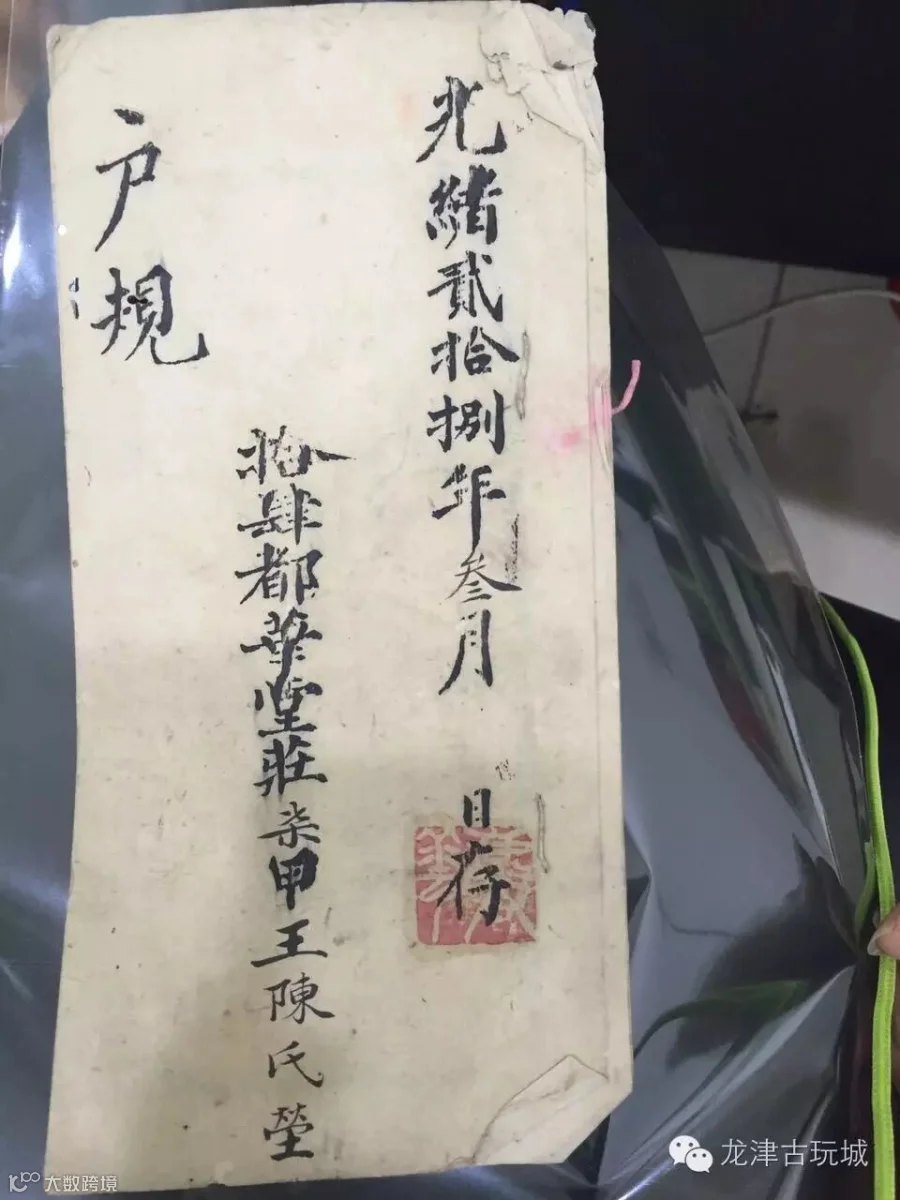 光緒貳拾捌年叁月 日存
拾肆都華堂莊柒甲王陳氏塋
户規
龙津古玩城
大数跨境